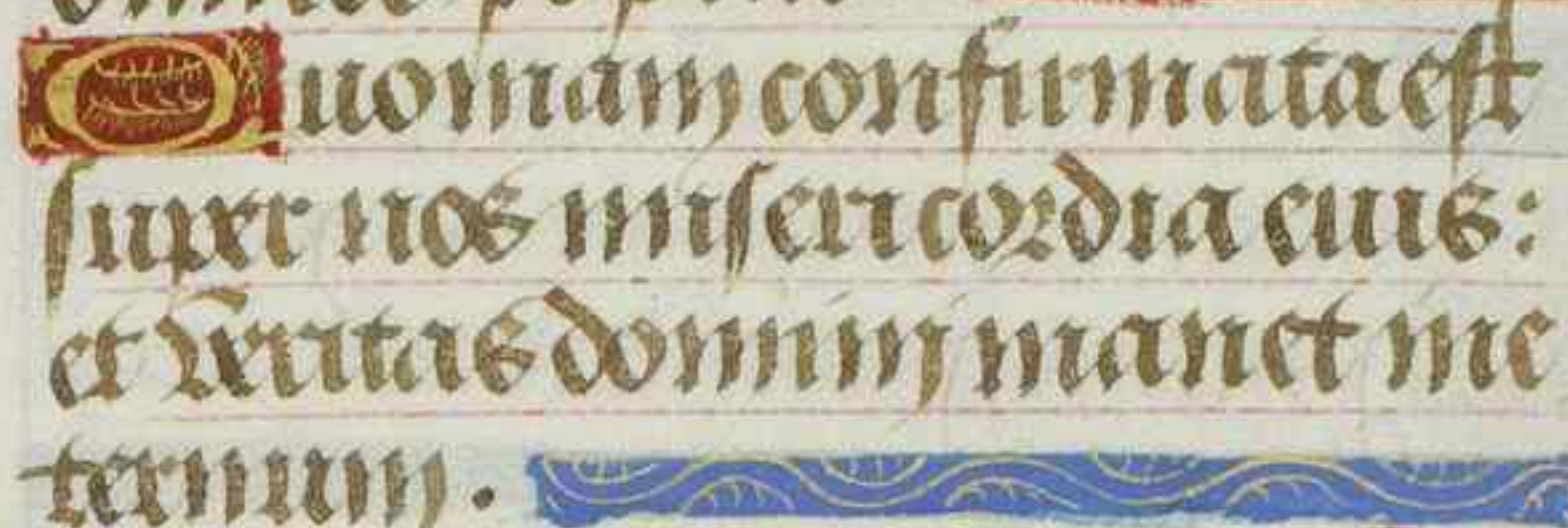 Quoniam confirmata est
super nos misericordia eius:
et veritas dominj manet ine
ternum.